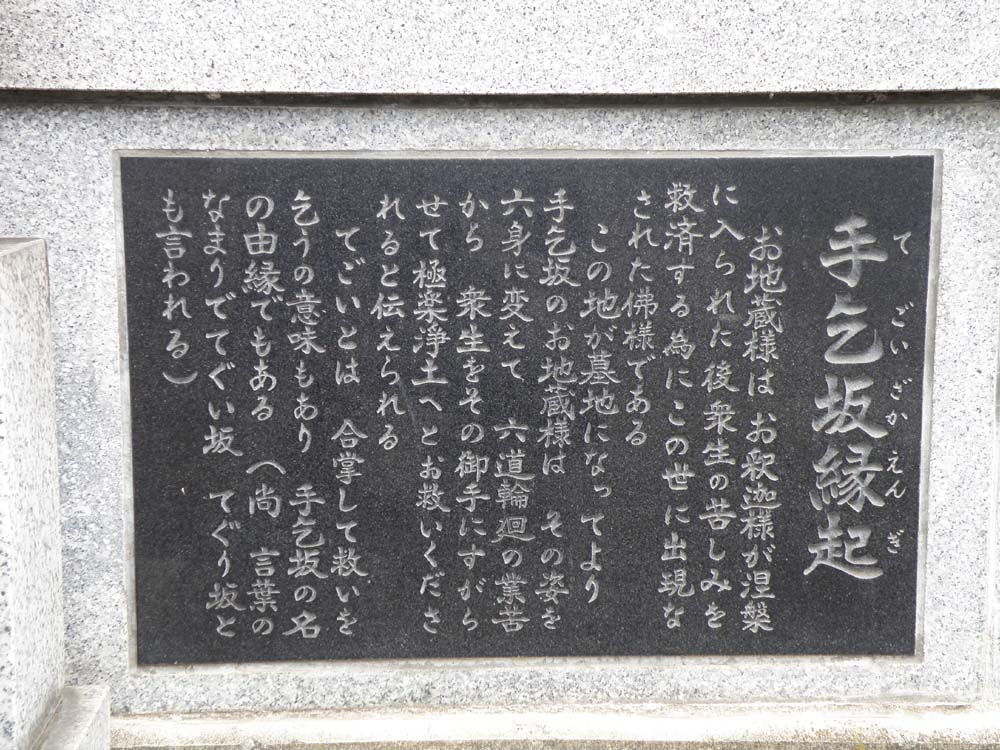 手乞坂縁起
てごいざかえんぎ
お地蔵様は お釈迦様が涅槃
に入られた後衆生の苦しみを
救済する為にこの世に出現な
された佛様である
この地が墓地になってより
手乞坂のお地蔵様は その姿を
六身に変えて 六道輪廻の業苦
から 衆生をその御手にすがら
せて極楽浄土へとお救いくださ
れると伝えられる
てごいとは 合掌して救いを
乞うの意味もあり 手乞坂の名
の由縁でもある (尚 言葉の
なまりでてぐい坂 てぐり坂と
も言われる)